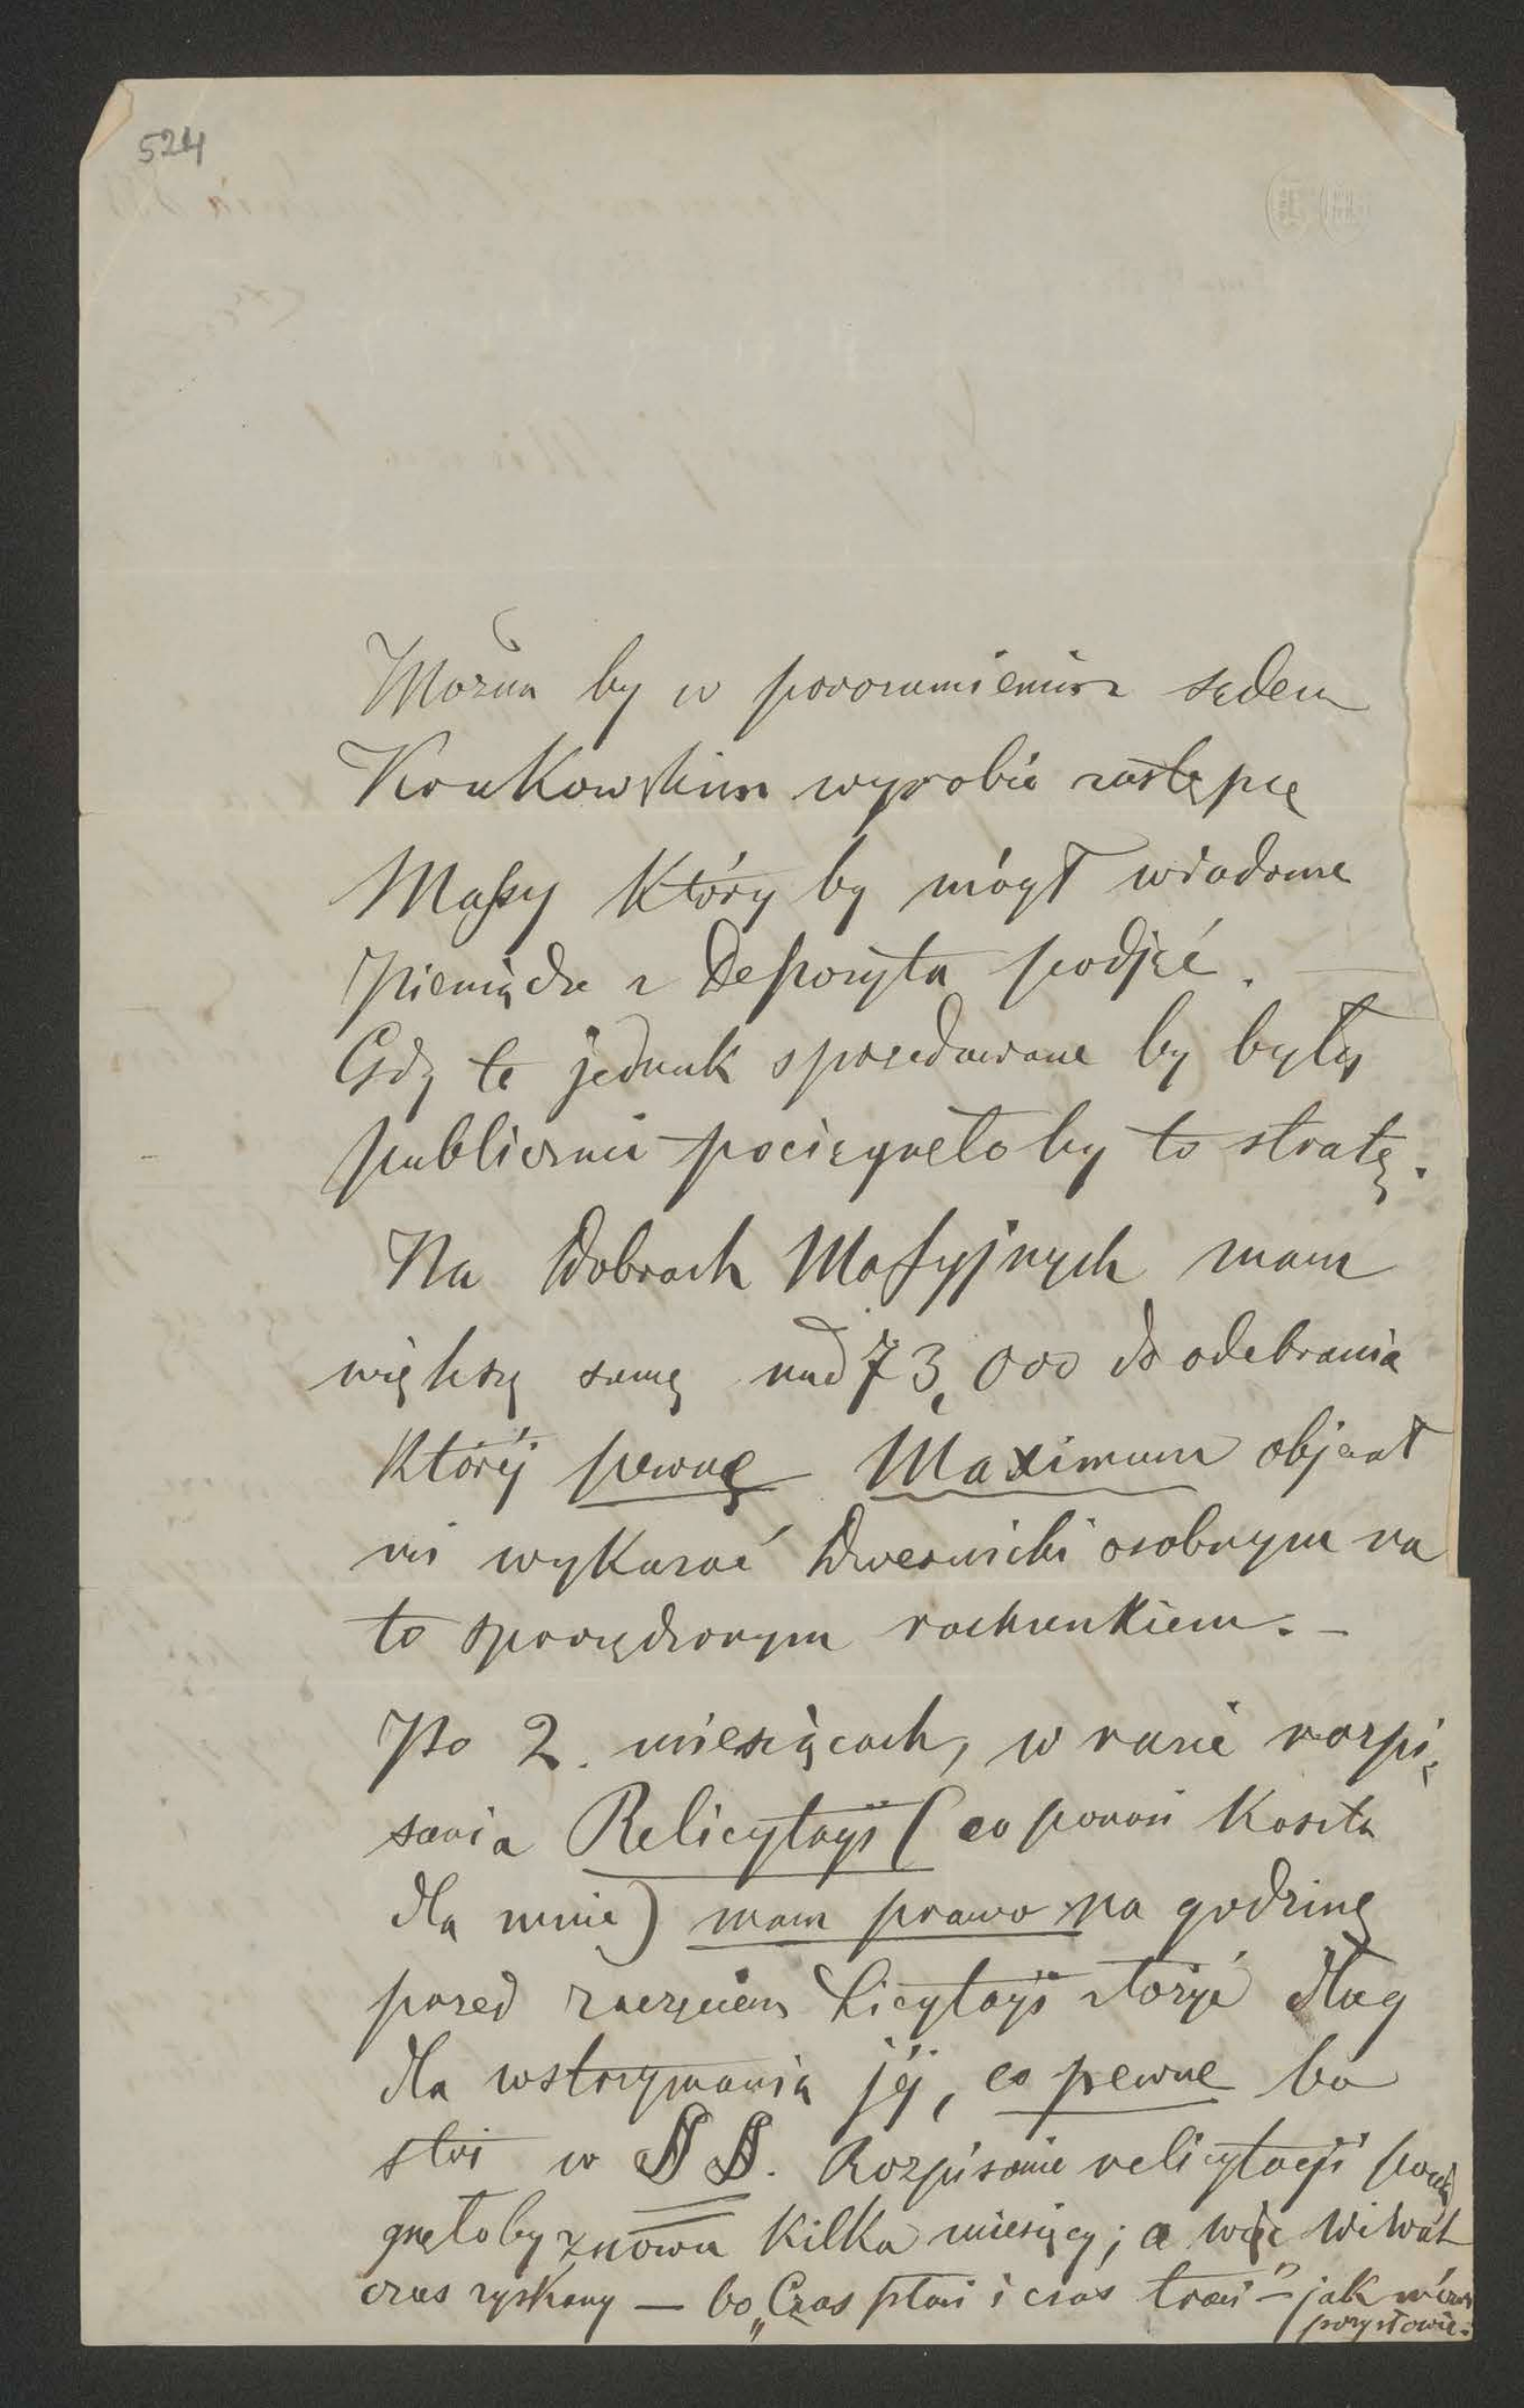 524
Można by w porozumieniu z sądem
Krakowskim wyrobić zastępcę
Massy który by mógł wiadome
pieniądze z Depozytu podjąć. —
Gdy te jednak sprzedawane by były
publicznie pociągnęło by to stratę.
Na Dobrach Massyjnych mam
większą sumę nad 73,000 do odebrania
której pewne Maximum objecał
mi wykazać Dwernicki osobnym na
to sporządzonym rachunkiem. –
Po 2. miesiącach, w razie rozpi-
sania Relicytacyi (co ponosi koszta
dla mnie) mam prawo na godzinę
przed zaczęciem Licytacyi złożyć dług
dla wstrzymania jéj, co pewne bo
stoi w §§. Rozpisanie relicytacyi pocią
gnęłoby znowu kilka miesięcy; a więc wiwat
czas zyskany — bo „Czas płaci i czas traci" – jak mówi
przysłowie.